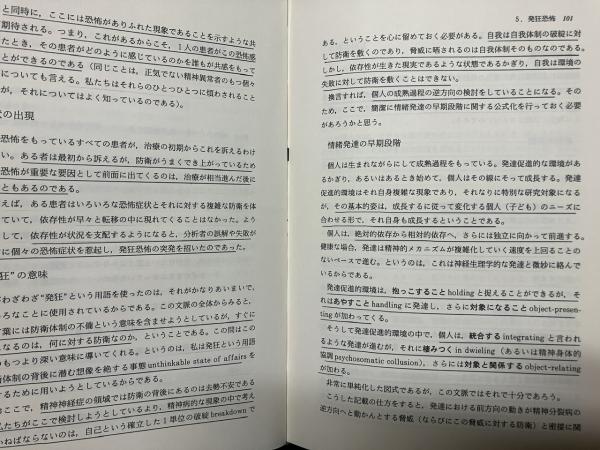 と同時に,ここには恐怖がありふれた現象であることを示すような共
期待される。つまり,これがあるからこそ,1人の患者がこの恐怖感
たとき,その患者がどのように感じているのかを誰もが共感をもって
ことができるのである(同じことは,正気でない精神異常者のもつ個々
についても言える。私たちはそれらのひとつひとつに煩わされること
が,それについてはよく知っているのである)。
の出現
恐怖をもっているすべての患者が,治療の初期からこれを訴えるわけ
い。ある者は最初から訴えるが,防衛がうまくでき上がっているため
恐怖が重要な要因として前面に出てくるのは,治療が相当進んだ後に
ともあるのである。
えば,ある患者はいろいろな恐怖症状とそれに対する複雑な防衛を体
ていて,依存性が早々と転移の中に現れてくることはなかった。よう
して,依存性が状況を支配するようになると,分析者の誤解や失敗が
に個々の恐怖症状を惹起し,発狂恐怖の突発を招いたのであった。
狂”の意味
わざわざ“発狂”という用語を使ったのは,それがかなりあいまいで,
ろなことに使用されているからである。この文脈の全体からみると,
葉には防衛体制の不備という意味を含ませようとしているが,すぐに
なるのは,何に対する防衛なのか,ということである。この問はこの
のもつより深い意味に導いてくれる。というのは,私は発狂という用語
体制の背後に潜む想像を絶する事態 unthinkable state of affairs を
するために用いようとしているからである。
ここで,精神神経症の領域では防衛の背後にあるのは去勢不安である
私たちがここで検討しようとしているより,精神病的な現象の中で考え
ねばならないのは,自己という確立した1単位の破綻 breakdown で
5.発狂恐怖 101
ある,ということを心に留めておく必要がある。自我は自我体制の破綻に対
して防衛を敷くのであり,脅威に晒されるのは自我体制そのものなのである。
しかし,依存性が生きた現実であるような状態であるかぎり,自我は環境の
失敗に対して防衛を敷くことはできない。
換言すれば,個人の成熟過程の逆方向の検討をしていることになる。その
ため,ここで,簡潔に情緒発達の早期段階に関する公式化を行っておく必要
があろうかと思う。
情緒発達の早期段階
個人は生まれながらにして成熟過程をもっている。発達促進的な環境があ
るかぎり,あるいはあるとき始めて,個人はその線にそって成長する。発達
促進的環境はそれ自身複雑な現象であり,それなりに特別な研究対象になる
が,その基本的姿は,成長するに従って変化する個人(子ども)のニーズに
合わせる形で,それ自身も成長するということである。
個人は,絶対的依存から相対的依存へ,さらには独立に向かって前進する。
健康な場合,発達は精神的メカニズムが複雑化していく速度を上回ることの
ないペースで進む。というのは,これは神経生理学的な発達と微妙に絡んで
いるからである。
発達促進的環境は,抱っこすること holding と捉えることができるが,そ
れはあやすこと handling に発達し,さらに対象になること object-presen-
ting が加わってくる。
そうして発達促進的環境の中で,個人は,統合する integrating と言われ
るような発達が進むが,それに棲みつく in dwieling(あるいは精神身体的
協調 psychosomatic collusion),さらには対象と関係する object-relating
が加わる。
非常に単純化した図式であるが,この文脈ではそれで十分であろう。
こうした記載の仕方をすると,発達における前方向の動きが精神分裂病の
逆方向へと動かんとする脅威(ならびにこの脅威に対する防衛)と密接に関